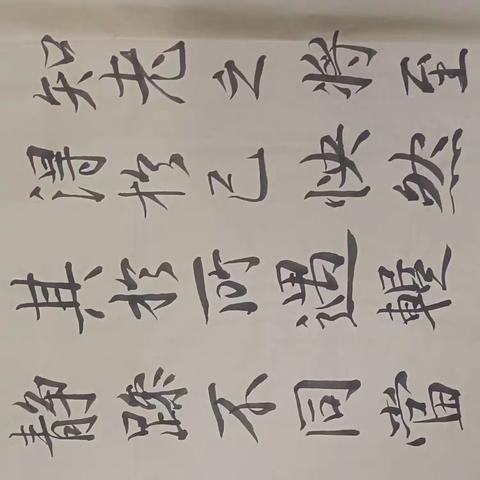 靜躁不同當
其於所遇暫
得於己快然
知老之將至